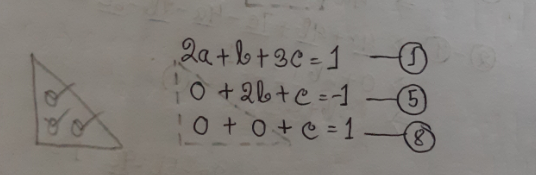 2a+b+3c=1 —①
0 + 2b+c=-1 —⑤
0 + 0 + c=1 —⑧